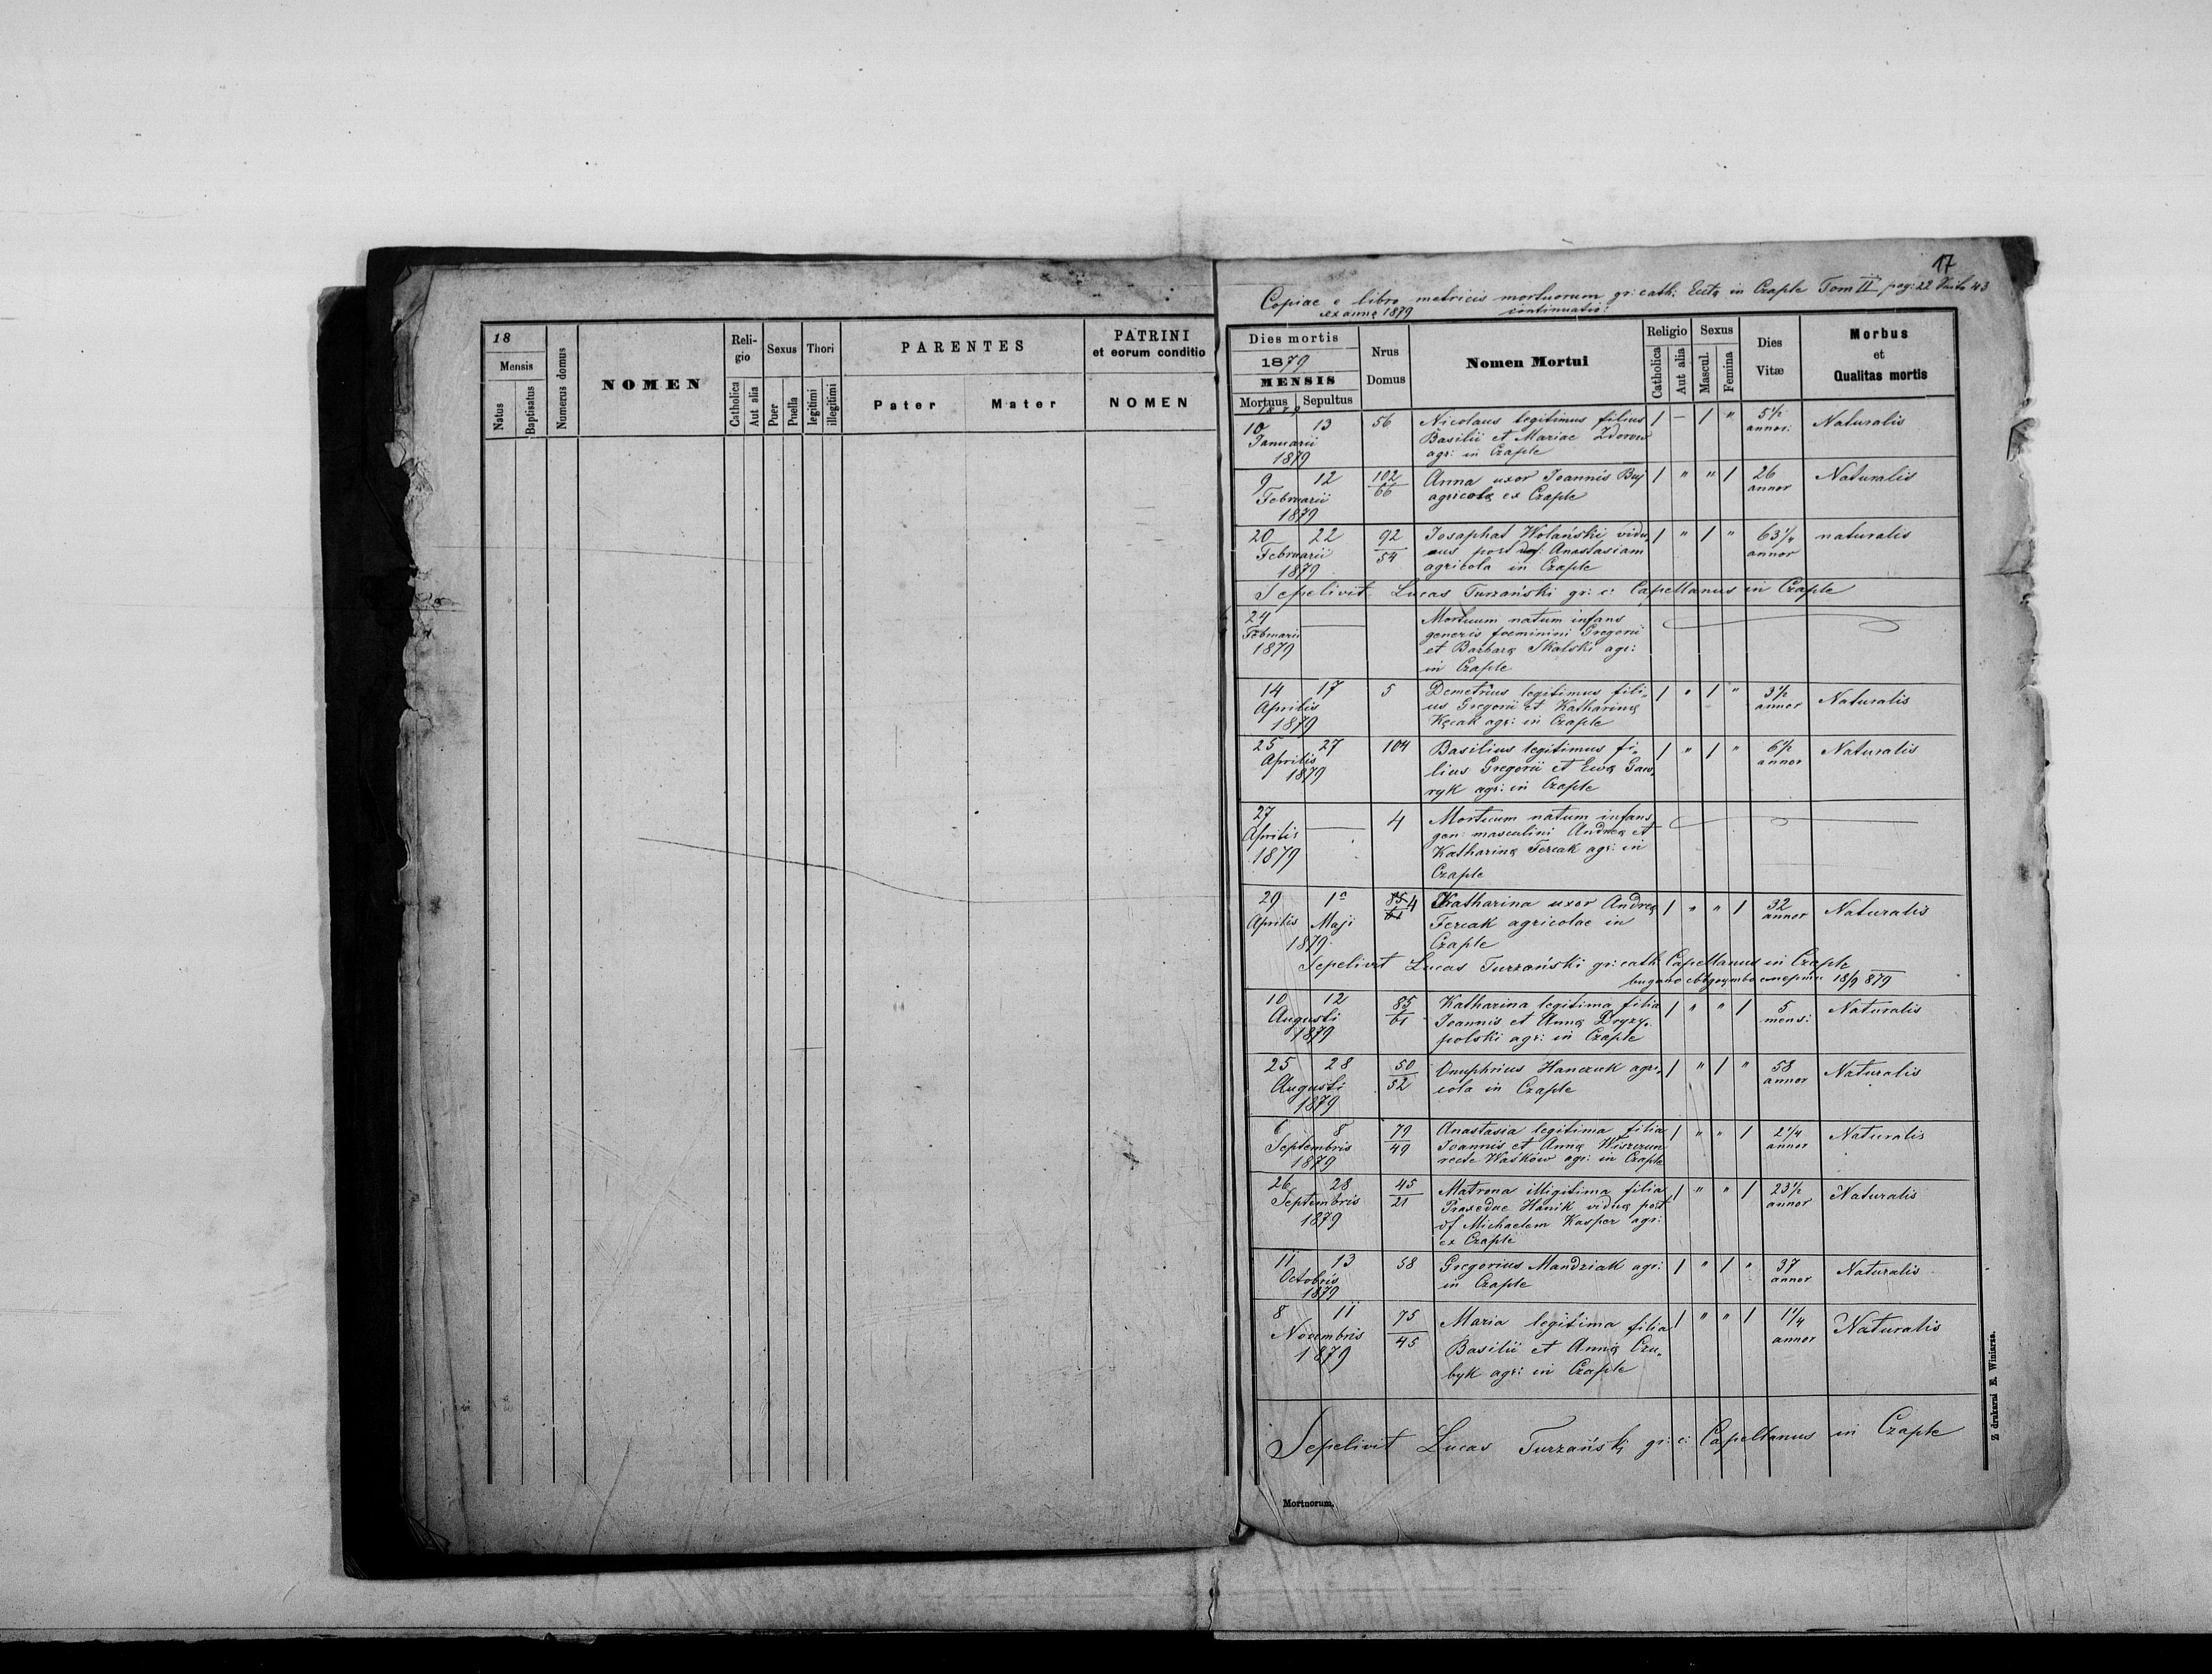 18
Mensis
Natus
Baptisatus
Numerus domus
NOMEN
Reli-
gio
Catholica
Aut alia
Sexus
Puer
Puella
Thori
legitimi
illegitimi
PARENTES
Pater
Mater
PATRINI
et eorum conditio
NOMEN
17
Copiae e libro metricis mortuorum gr: cath: Eccl in Czaple Tom II pag: 22 43
ex anno 1879 continuatio:
Dies mortis
1879
MENSIS
Mortuus Sepultus
Nrus
Domus
Nomen Mortui
Religio
Catholica
Aut alia
Sexus
Mascul.
Femina
Dies
Vitæ
Morbus
et
Qualitas mortis
1879
10 13 56 Nicolaus legitimus filius 1 — 1 " 5 1/2 Naturalis
Januarii Basilii et Mariae Zdorow annor:
1879 agr: in Czaple
9 12 102/66 Anna uxor Joannis Buj 1 " " 1 26 Naturalis
Februarii agricolę ex Czaple annor
1879
20 22 92/54 Josaphat Wolański vidu, 1 " 1 " 63 naturalis
Februarii us post def: Anastasiam annor
1879 agricola in Czaple
Sepelivit Lucas Turzański gr: c: Capellanus in Czaple
24 Mortuum natum infans
Februarii generis foeminini Gregorii
1879 et Barbarę Skalski agr:
in Czaple
14 17 5 Demetrius legitimus fili, 1 " 1 " 3 1/2 Naturalis
Aprilis us Gregorii et Katharinę annor
1879 Kęcak agr: in Czaple
25 27 104 Basilius legitimus fi, 1 " 1 " 6 1/2 Naturalis
Aprilis lius Gregorii et Ewę Gaw, annor
1879 ryk agr: in Czaple
27 4 Mortuum natum infans
Aprilis gen: masculini Andreę et
1879 Katharinę Fercak agr: in
Czaple
29 1º 4 Katharina uxor Andreę 1 " " 1 32 Naturalis
Aprilis Maji Fercak agricolae in annor
1879 Czaple
Sepelivit Lucas Turzański gr: cath: Capellanus in Czaple
18/9 879
10 12 85/61 Katharina legitima filia 1 " " 1 5 Naturalis
Augusti Joannis et Annę Dryzy, mens:
1879 polski agr: in Czaple
25 28 50/52 Onuphrius Hanczuk agri, 1 " 1 " 58 Naturalis
Augusti cola in Czaple annor
1879
6 8 79/49 Anastasia legitima filia 1 " " 1 2 1/4 Naturalis
Septembris Joannis et Annę annor
1879 recte Waśków agr: in Czaple
26 28 45/21 Matrona illigitima filia 1 " " 1 23 1/2 Naturalis
Septembris Praxedae Hanik viduę post annor
1879 df Michaelem Kasper agr:
ex Czaple
11 13 58 Gregorius Mandziak agr: 1 " 1 " 37 Naturalis
Octobris in Czaple annor
1879
8 11 75/45 Maria legitima filia 1 " " 1 1 1/4 Naturalis
Novembris Basilii et Annę Czu, annor
1879 byk agr: in Czaple
Sepelivit Lucas Turzański gr: c: Capellanus in Czaple
Mortuorum.
Z drukarni E. Winiarza.